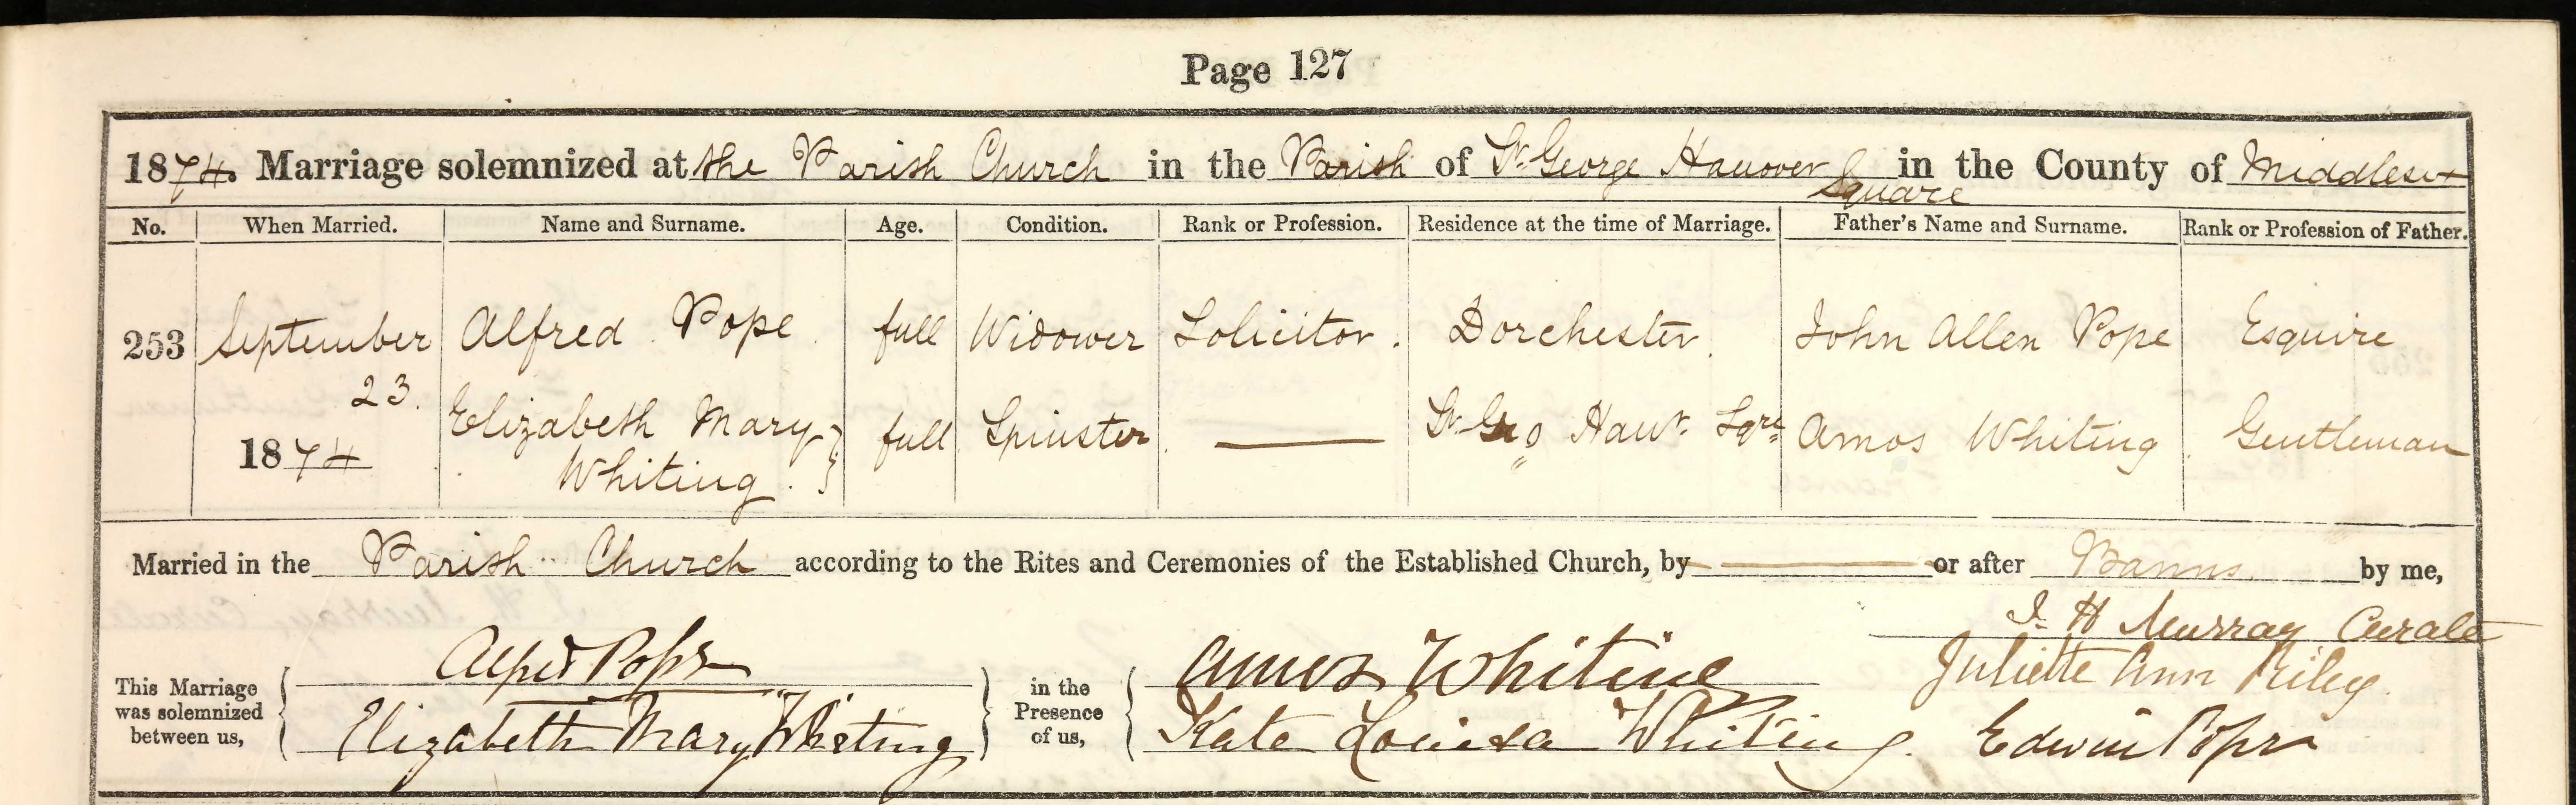 Page 127
1874. Marriage solemnized at the Parish Church in the Parish of St. George Hanover Square in the County of Middlesex
No. When Married. Name and Surname. Age. Condition. Rank or Profession. Residence at the time of Marriage. Father's Name and Surname. Rank or Profession of Father.
253 September 23. 1874 Alfred Pope full Widower Solicitor. Dorchester. John Allen Pope Esquire
Elizabeth Mary Whiting. full Spinster — St. Geo Hanr. Sqre. Amos Whiting Gentleman
Married in the Parish Church according to the Rites and Ceremonies of the Established Church, by — or after Banns. by me,
J. H Murray Curate
This Marriage was solemnized between us,
Alfred Pope
Elizabeth Mary Whiting
in the Presence of us,
Amos Whiting
Juliette Ann Riley.
Kate Louisa Whiting.
Edwin Pope